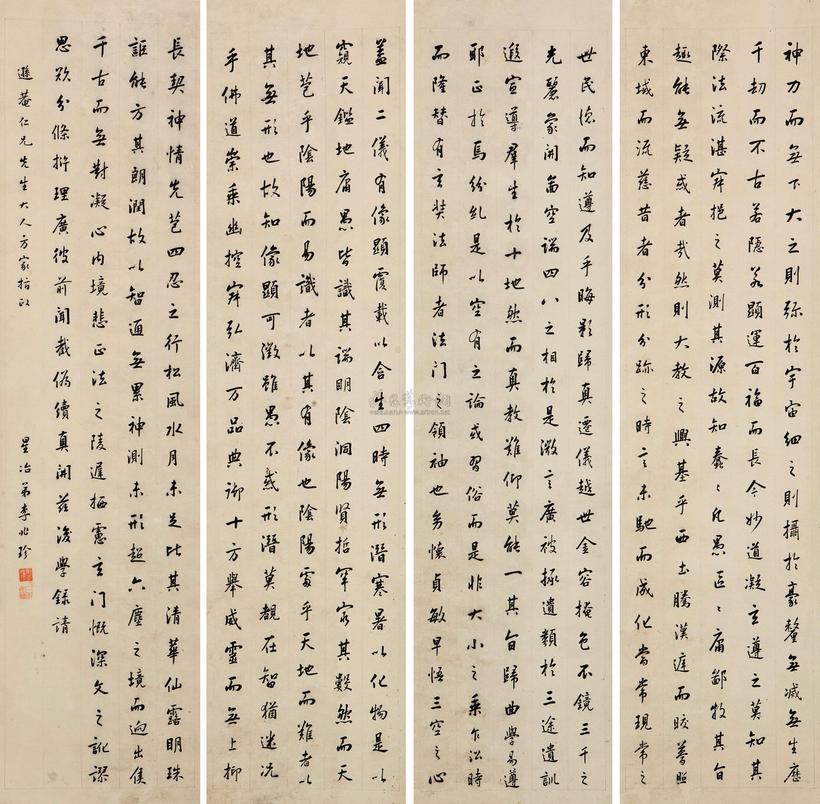 蓋聞二儀有像顯覆載以含生四時無形潛寒暑以化物是以
窺天鑑地庸愚皆識其端明陰洞陽賢哲罕窮其數然而天
地苞乎陰陽而易識者以其有像也陰陽處乎天地而難者以
其無形也故知像顯可徵雖愚不惑形潛莫覩在智猶迷況
乎佛道崇乘幽控寂弘濟万品典御十方舉威靈而無上抑
神力而無下大之則彌於宇宙細之則攝於豪釐無滅無生歷
千劫而不古若隱若顯運百福而長今妙道凝玄遵之莫知其
際法流湛寂挹之莫測其源故知蠢〻凡愚區〻庸鄙牧其旨
趣能無疑惑者哉然則大教之興基乎西土騰漢庭而皎夢照
東域而流慈昔者分形分跡之時言未馳而成化當常現常之
世民德而知遵及乎晦影歸真遷儀越世金容掩色不鏡三千之
光麗象開圖空端四八之相於是微言廣被拯遺類於三途遺訓
遐宣導群生於十地然而真教難仰莫能一其旨歸曲學易遵
耶正於焉紛糺是以空有之論或習俗而是非大小之乘乍沿時
而隆替有玄奘法師者法門之領袖也幼懷貞敏早悟三空之心
長契神情先苞四忍之行松風水月未足比其清華仙露明珠
詎能方其朗潤故以智通無累神測未形超六塵之境而迥出隻
千古而無對凝心內境悲正法之陵遲栖慮玄門慨深文之訛謬
思欲分條析理廣彼前聞截偽續真開茲後學錄請
遜菴仁兄先生大人方家指政
星冶弟李兆珍